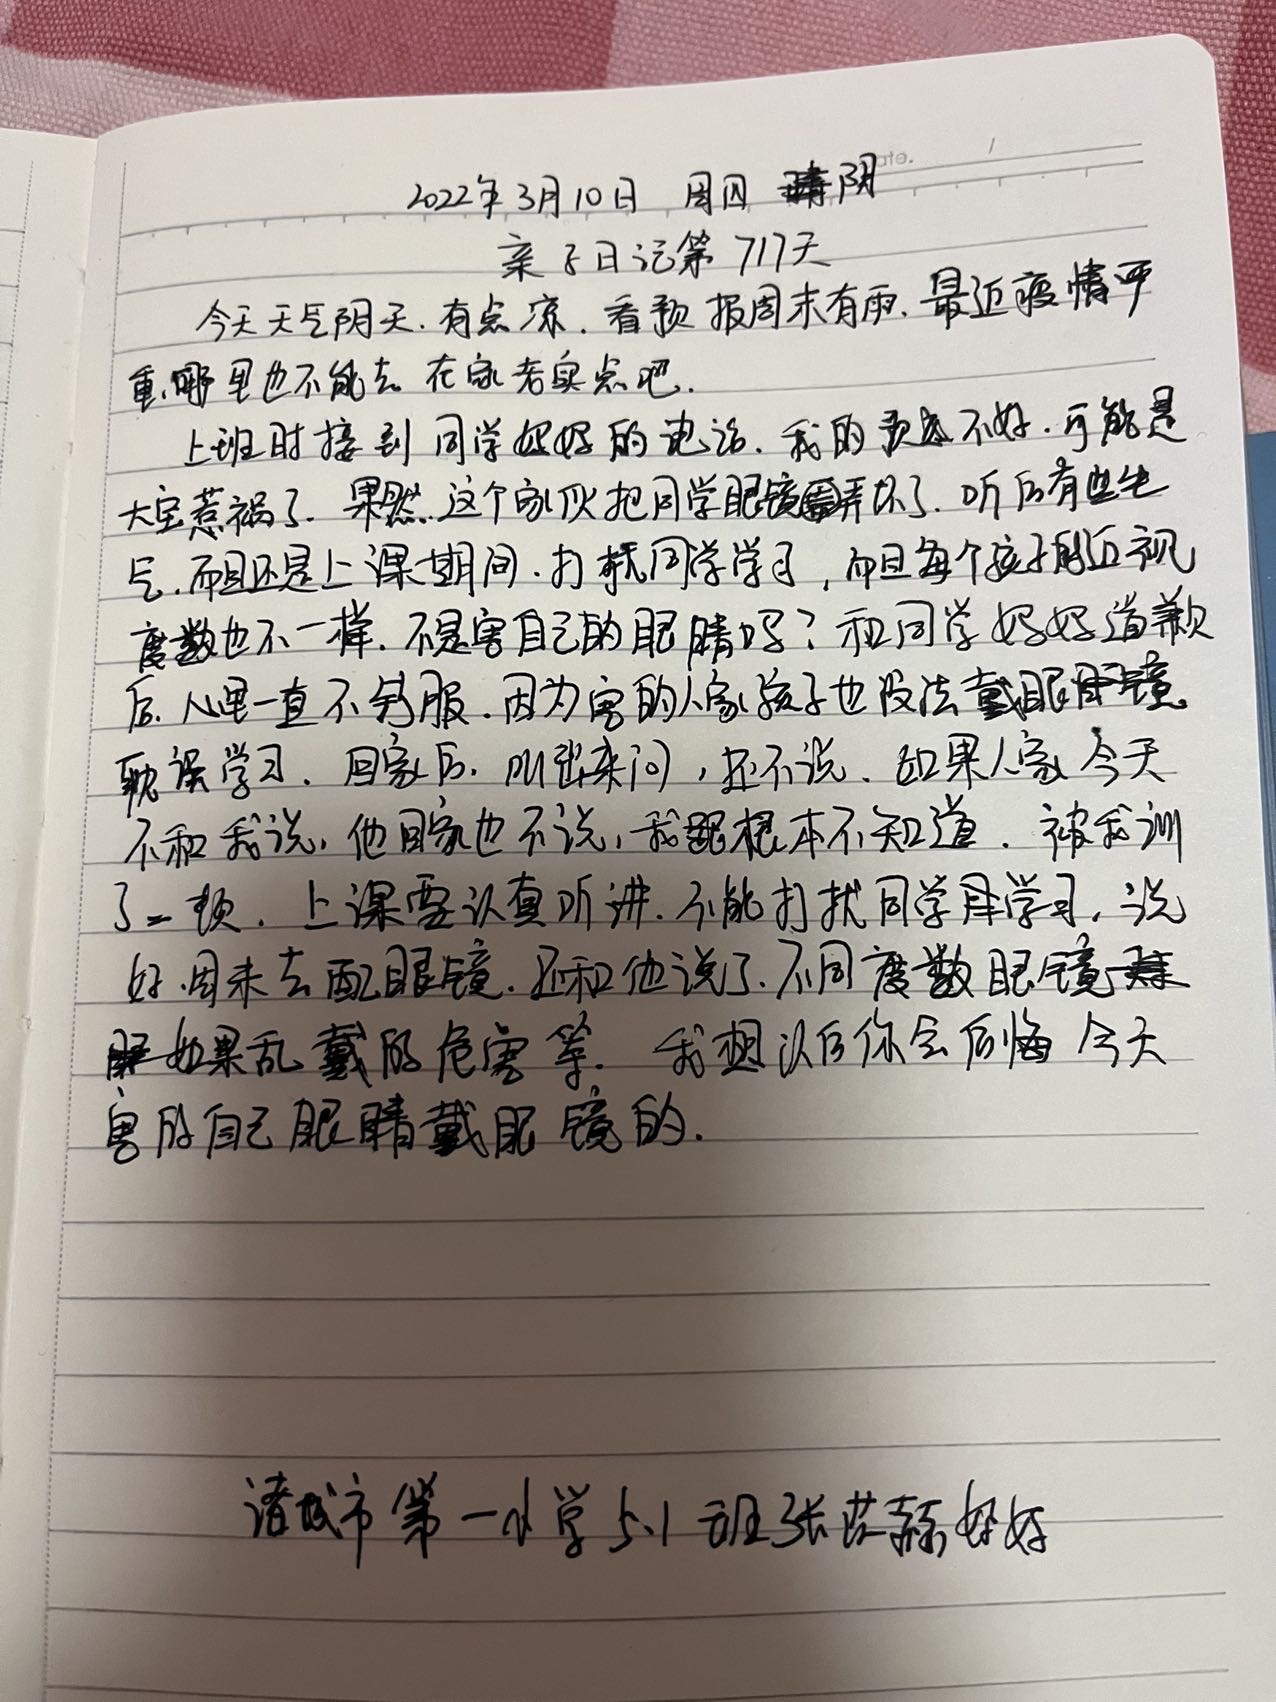 ate.
2022年3月10日 周四 阴
亲子日记第717天
今天天气阴天.有点凉.看预报周末有雨.最近疫情严
重,哪里也不能去.在家老实点吧.
上班时接到同学妈妈的电话.我的预感不好.可能是
大宝惹祸了.果然.这个家伙把同学眼镜弄坏了.听后有些生
气.而且还是上课期间.打扰同学学习,而且每个孩子的近视
度数也不一样.不是害自己的眼睛吗?和同学妈妈道歉
后.心里一直不舒服.因为害的人家孩子也没法戴眼镜.
耽误学习.回家后.叫出来问,还不说.如果人家今天
不和我说,他回家也不说,我根本不知道.被我训
了一顿.上课要认真听讲.不能打扰同学学习,说
好.周末去配眼镜.还和他说了.不同度数眼镜
如果乱戴的危害等.我想以后你会后悔今天
害的自己眼睛戴眼镜的.
诸城市第一小学5.1班张 妈妈